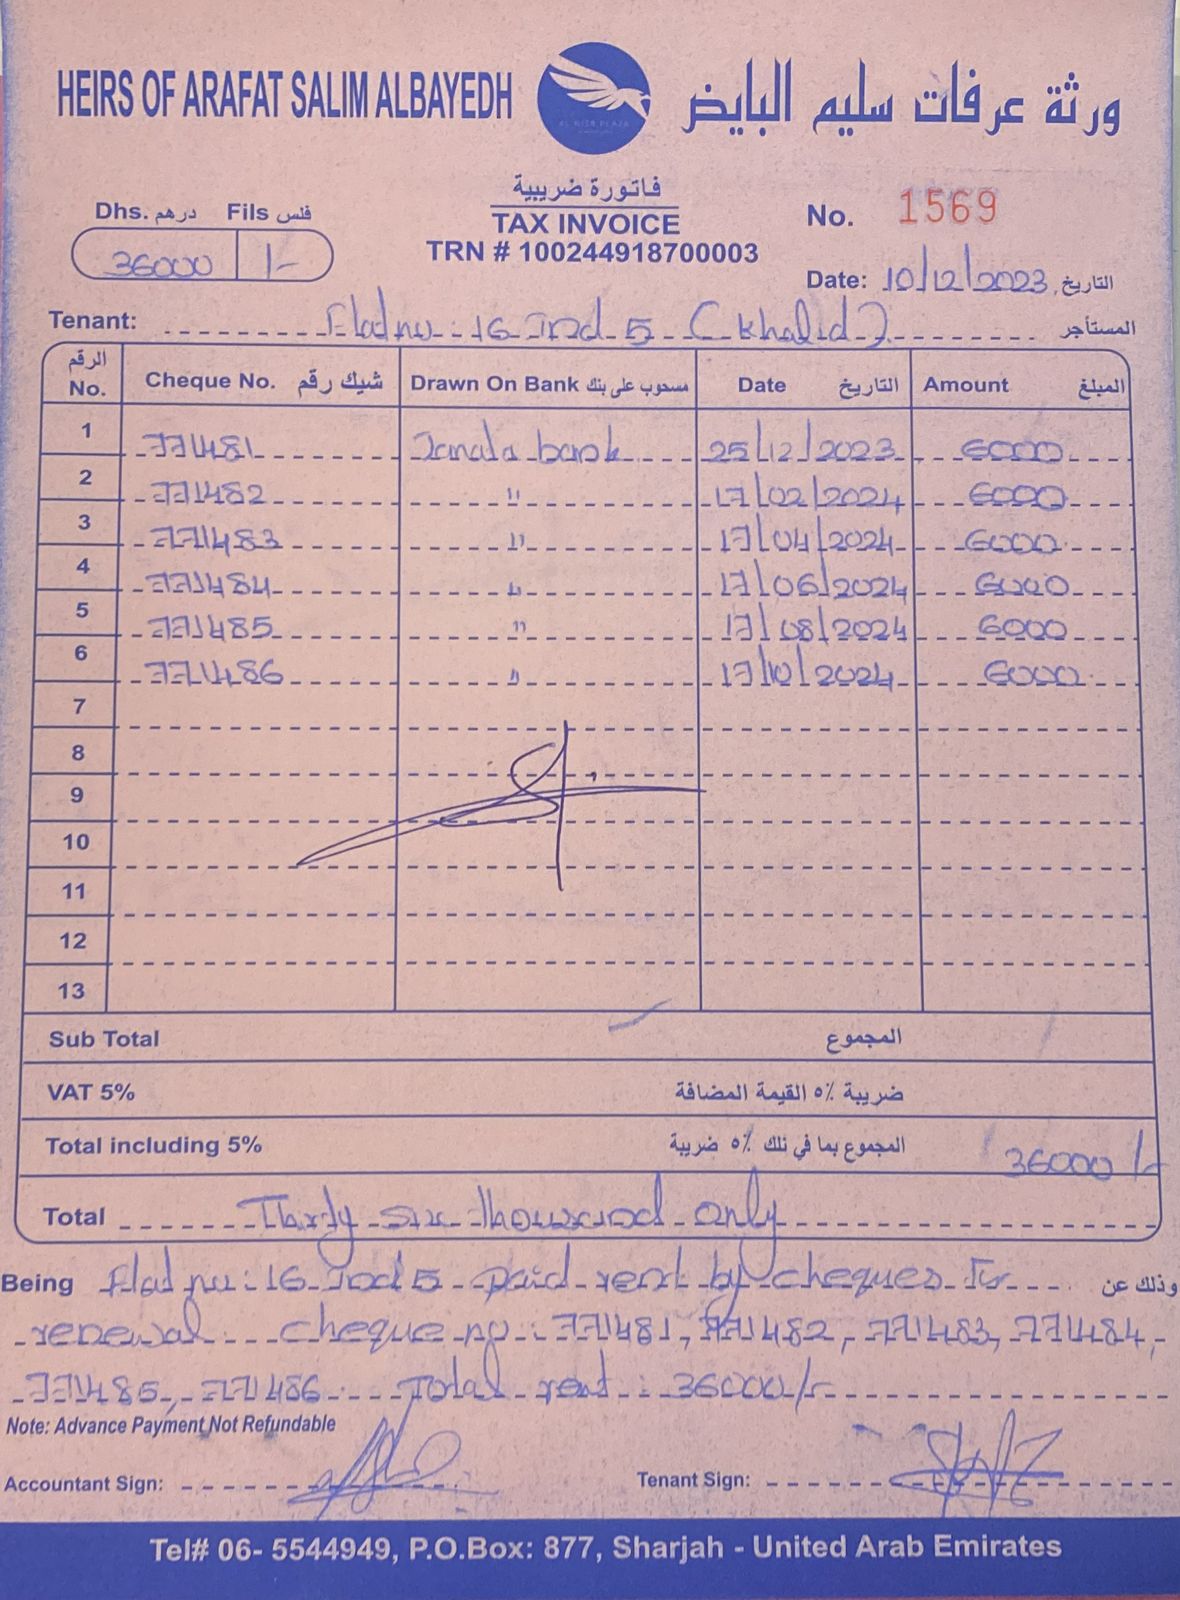 HEIRS OF ARAFAT SALIM ALBAYEDH ورثة عرفات سليم البايض
فاتورة ضريبية
TAX INVOICE
TRN # 100244918700003
Dhs. درهم Fils فلس
36000 /-
No. 1569
Date: 10/12/2023 التاريخ
Tenant: Flat no: 16 Ind 5 (Khalid) المستأجر
الرقم No. Cheque No. شيك رقم Drawn On Bank مسحوب على بنك Date التاريخ Amount المبلغ
1 771481 Janata bank 25/12/2023 6000
2 771482 " 17/02/2024 6000
3 771483 " 17/04/2024 6000
4 771484 " 17/06/2024 6000
5 771485 " 17/08/2024 6000
6 771486 " 17/10/2024 6000
7
8
9
10
11
12
13
Sub Total المجموع
VAT 5% ضريبة ٥٪ القيمة المضافة
Total including 5% المجموع بما في تلك ٥٪ ضريبة 36000/-
Total Thirty six thousand only
Being Flat no: 16 Ind 5 paid rent by cheques for وذلك عن
renewal cheque no: 771481, 771482, 771483, 771484,
771485, 771486 Total rent 36000/-
Note: Advance Payment Not Refundable
Accountant Sign: Tenant Sign:
Tel# 06- 5544949, P.O.Box: 877, Sharjah - United Arab Emirates